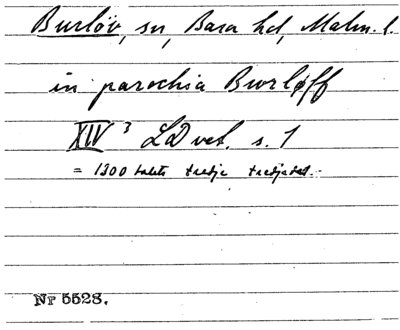 Burlöv, sn, Bara hd, Malm. l.
in parochia Burløff
XIV 3 LD vet. s. 1
= 1300 talets tredje tredjedel.
Nr 5528.